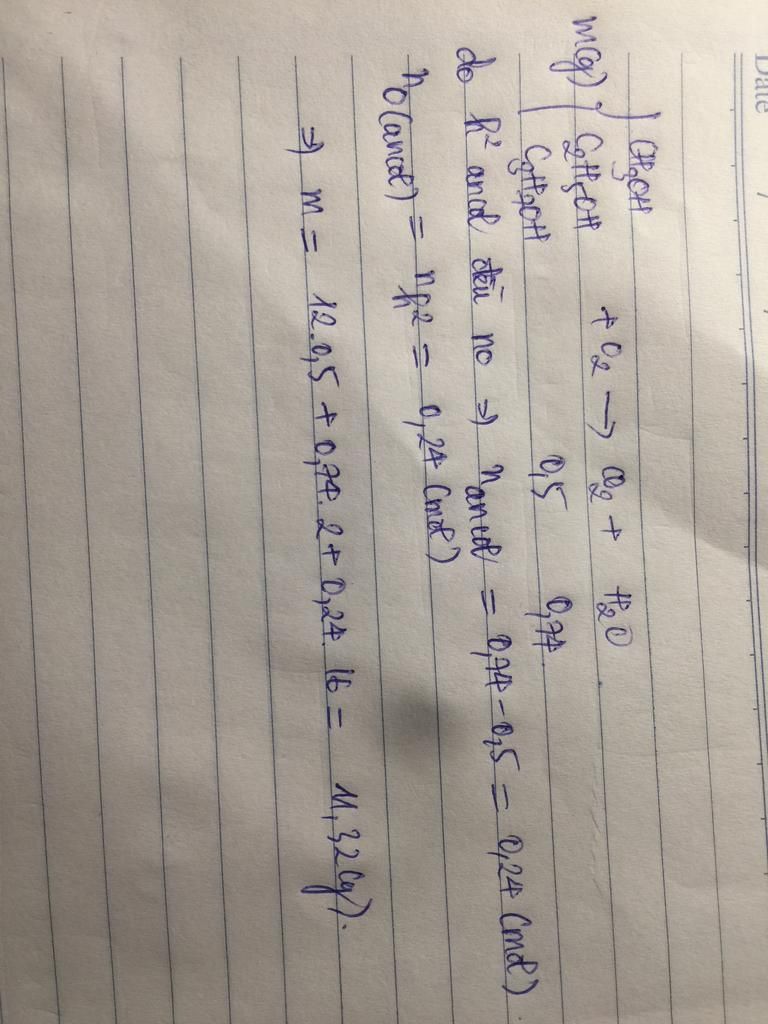 Date
CH3OH
m(g) { C2H5OH + O2 → CO2 + H2O
C3H7OH 0,5 0,74
do h² ancol đều no ⇒ nancol = 0,74 - 0,5 = 0,24 (mol)
nO(ancol) = nh² = 0,24 (mol)
⇒ m = 12.0,5 + 0,74.2 + 0,24.16 = 11,32 (g).